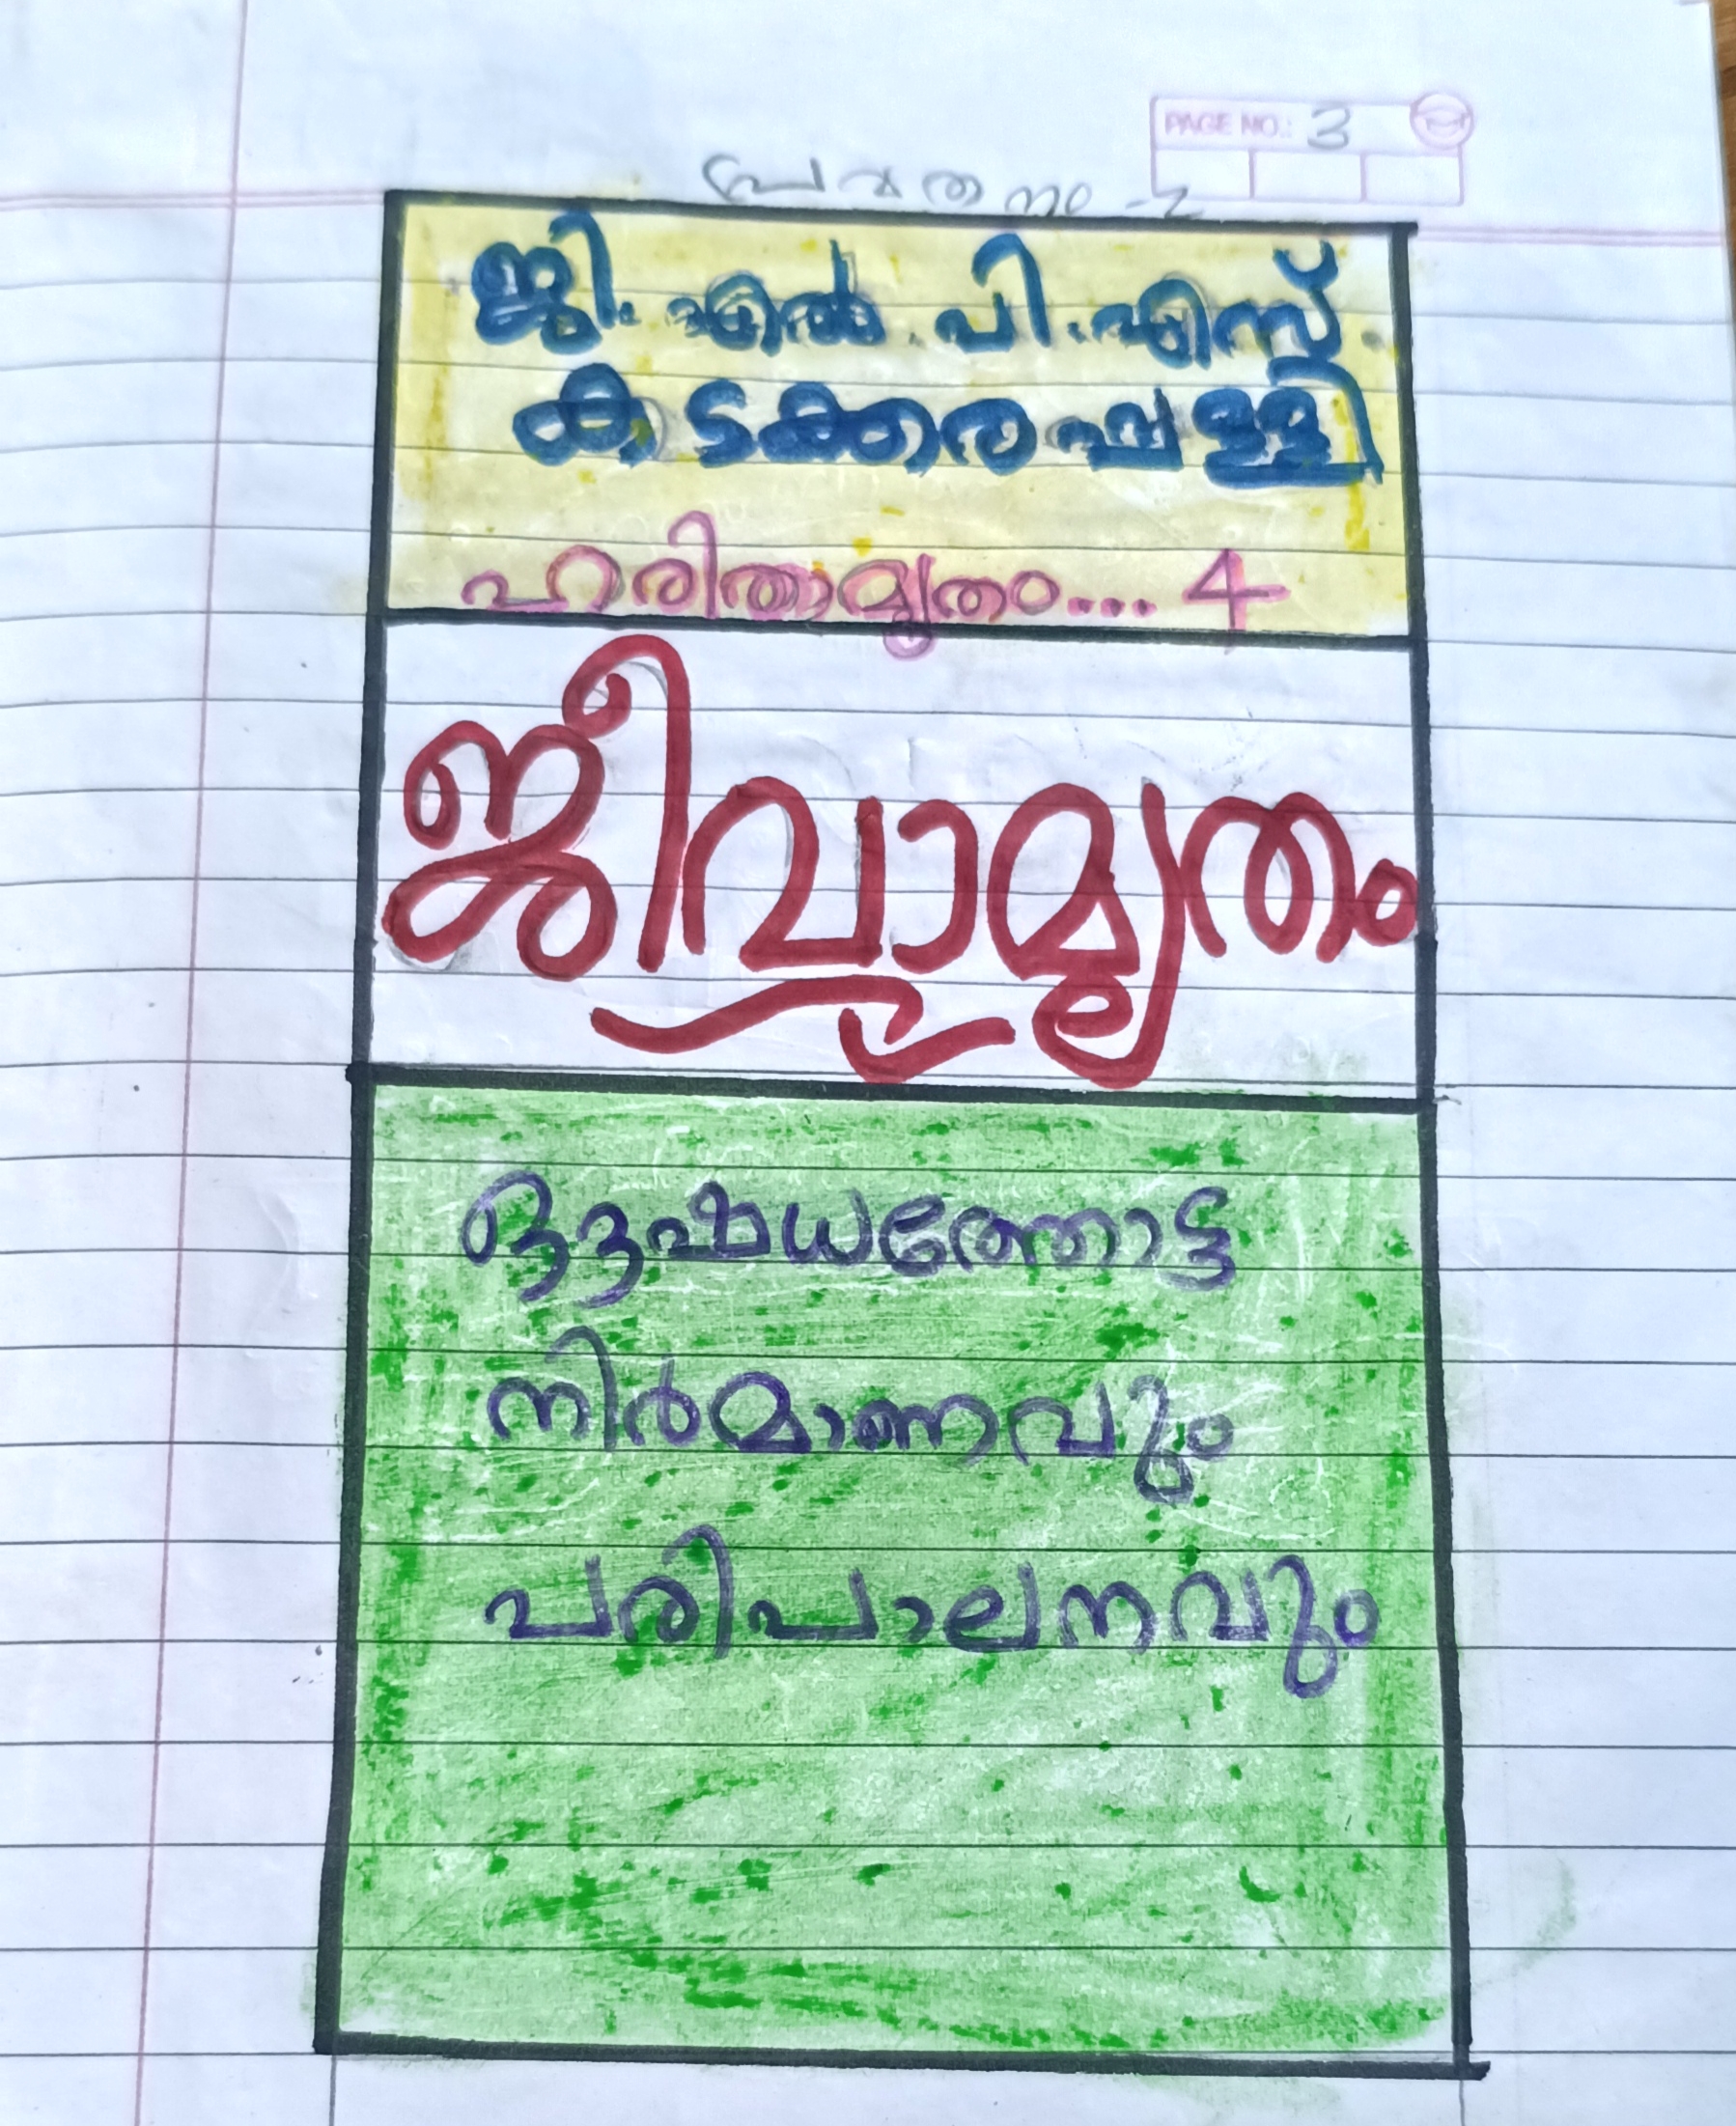 PAGE NO.: 3
ജി. എൽ. പി. എസ്.
കടക്കരപ്പള്ളി
ഹരിതാമൃതം.... 4
ജീവാമൃതം
ഔഷധത്തോട്ട
നിർമാണവും
പരിപാലനവും